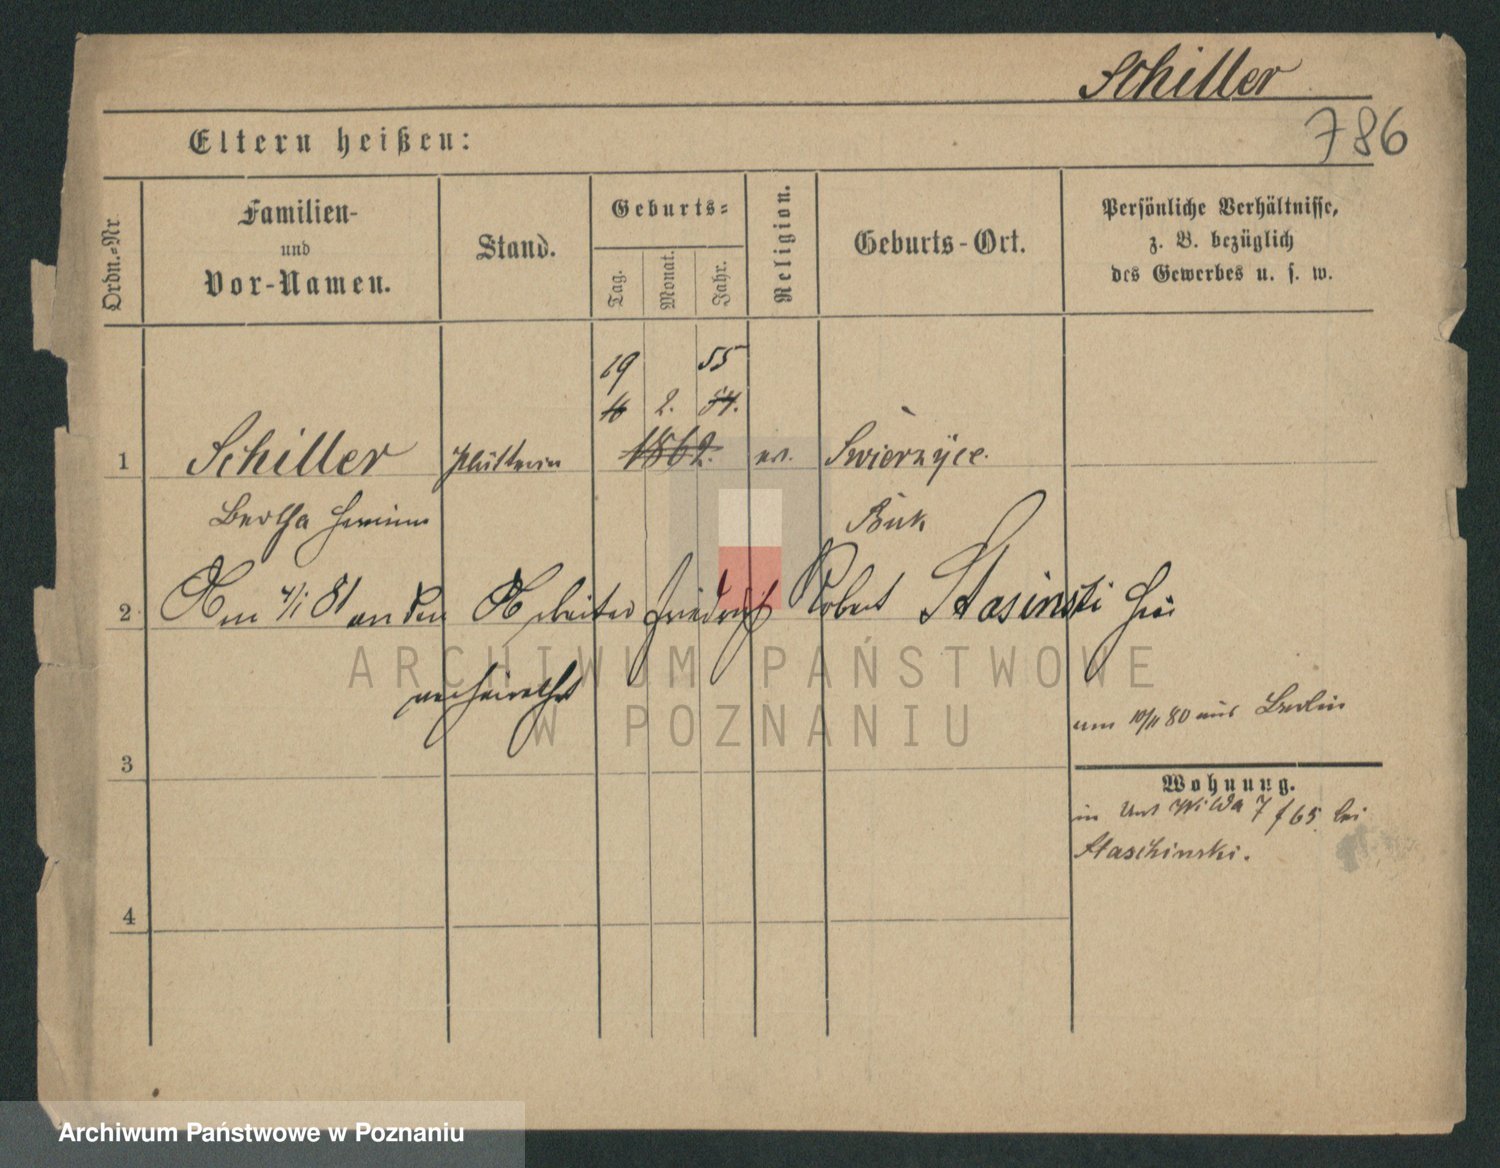 Schiller
786
Eltern heißen:
Ordn.-Nr
Familien-
und
Vor-Namen.
Stand.
Geburts-
Tag.
Monat.
Jahr.
Religion.
Geburts-Ort.
Persönliche Verhältnisse,
z. B. bezüglich
des Gewerbes u. s. w.
19 55
16 2. 54.
1 Schiller 1862. ev.
Bertha Buk
2 Am 4/1 81 an den Arbeiter Friedrich Robert Stasinski hier
verheirathet
am 10/11 80 aus Berlin
3
Wohnung.
in Unt Wilda 7 f 65 bei
Staschinski.
4
ARCHIWUM PAŃSTWOWE
W POZNANIU
Archiwum Państwowe w Poznaniu